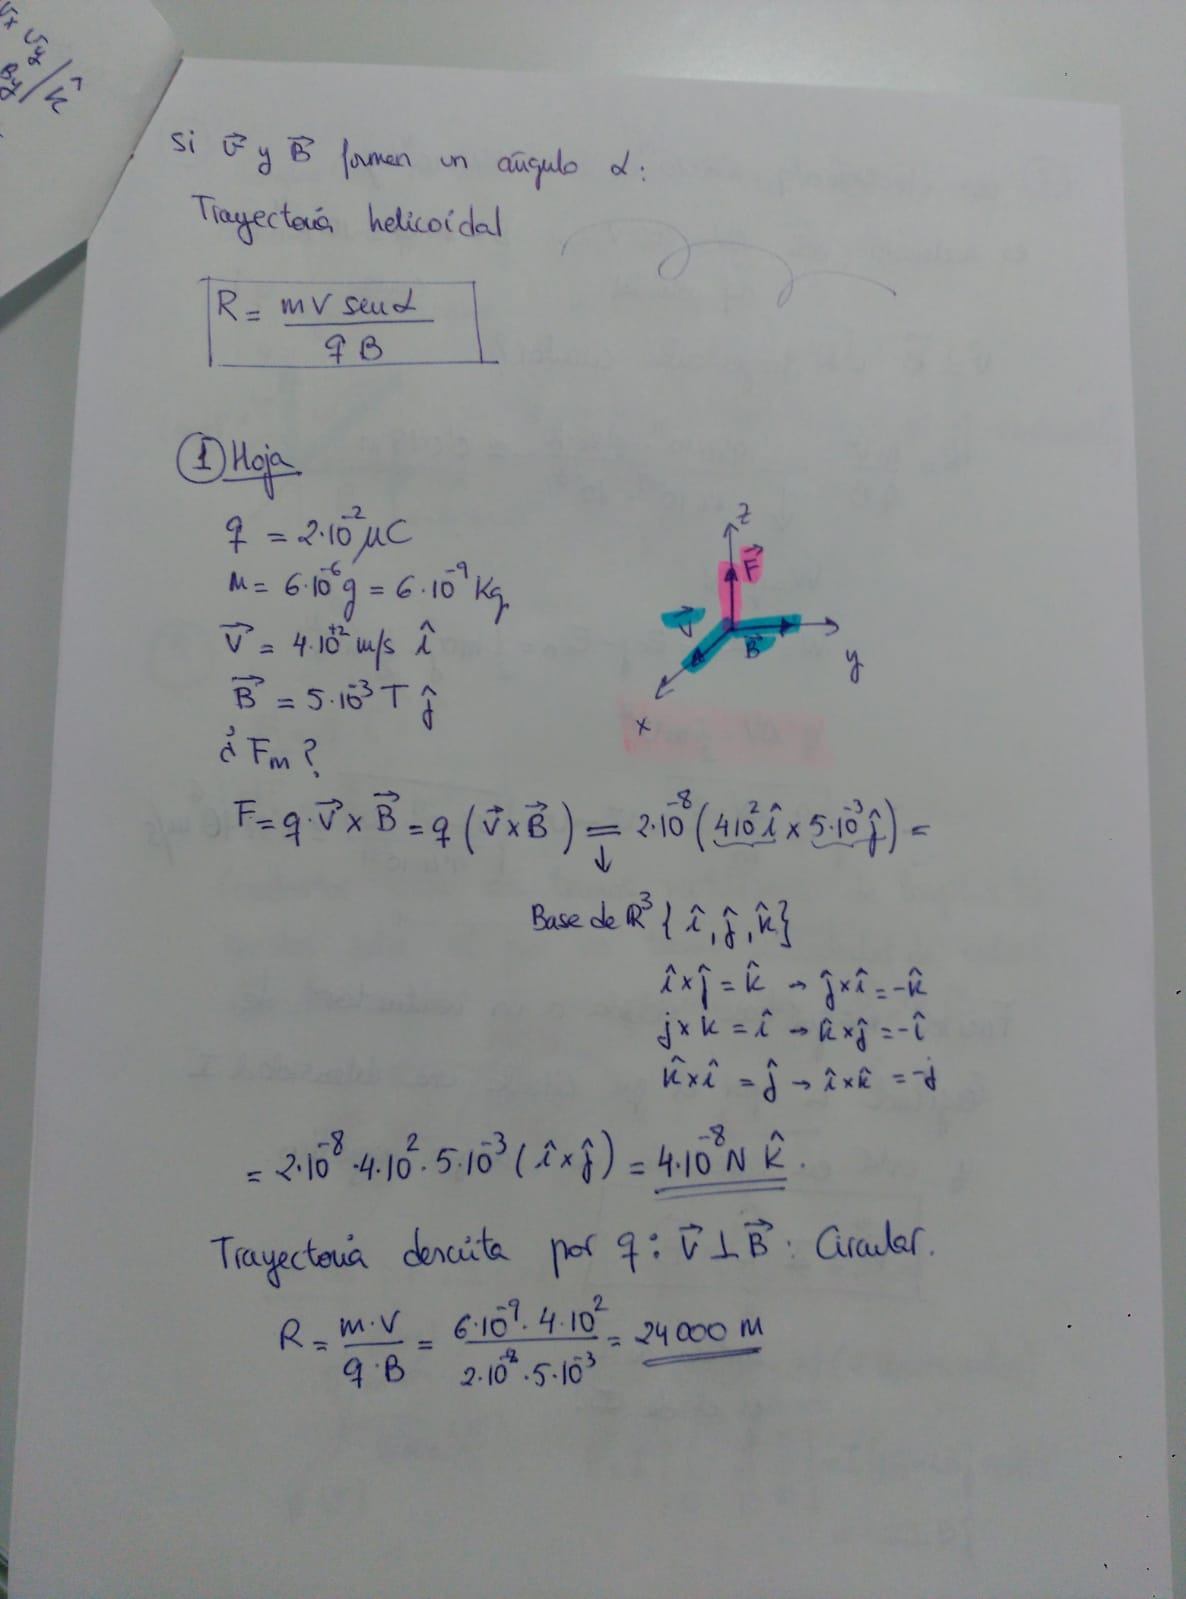 Vx Vy
By / k̂
Si v⃗ y B⃗ formen un ángulo α:
Trayectoria helicoidal
R = mv senα / qB
① Hoja
q = 2·10⁻² μC
m = 6·10⁻⁶ g = 6·10⁻⁹ Kg
v⃗ = 4·10⁺² m/s î
B⃗ = 5·10⁻³ T ĵ
¿ Fm ?
z
F⃗
v⃗
B⃗
y
x
F = q·v⃗ × B⃗ = q (v⃗ × B⃗) = 2·10⁻⁸ (4·10² î × 5·10⁻³ ĵ) =
↓
Base de ℝ³ { î, ĵ, k̂ }
î × ĵ = k̂ → ĵ × î = -k̂
j × k = î → k̂ × ĵ = -î
k̂ × î = ĵ → î × k̂ = -ĵ
= 2·10⁻⁸ · 4·10² · 5·10⁻³ ( î × ĵ ) = 4·10⁻⁸ N k̂.
Trayectoria descrita por q : v⃗ ⊥ B⃗ : Circular.
R = m·v / q·B = 6·10⁻⁹ · 4·10² / 2·10⁻⁸ · 5·10⁻³ = 24000 m